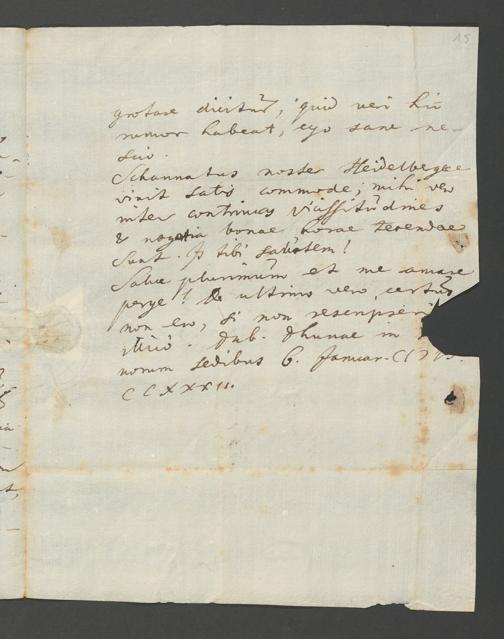 15
grotare dicitur, quid veri hic
rumor habeat, ego sane ne-
scio.
Schannatus noster Heidelbergae
vivit satis commode; mihi vero
inter continuas vicissitudines
& negotia bonae horae terendae
sunt. Is tibi salutem!
Salve plurimum et me amare
perge! De ultimo vero certus
non ero, si non rescripseri
Dab. Dhunae in
norum sedibus 6. Januar. CI
CCXXXII.